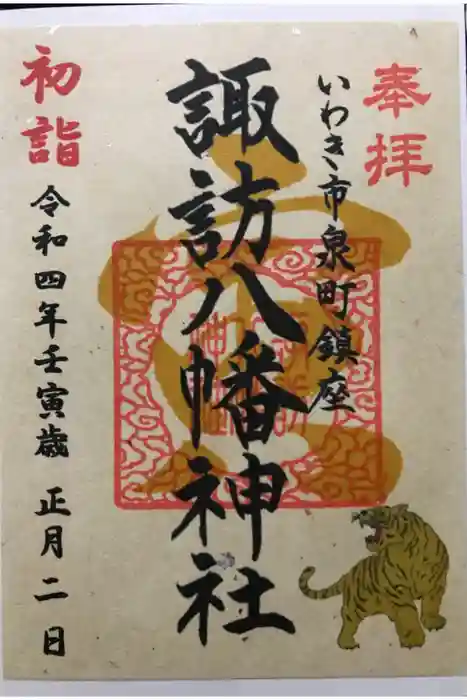 奉拝
いわき市泉町鎮座
諏訪八幡神社
初詣
令和四年壬寅歳 正月二日